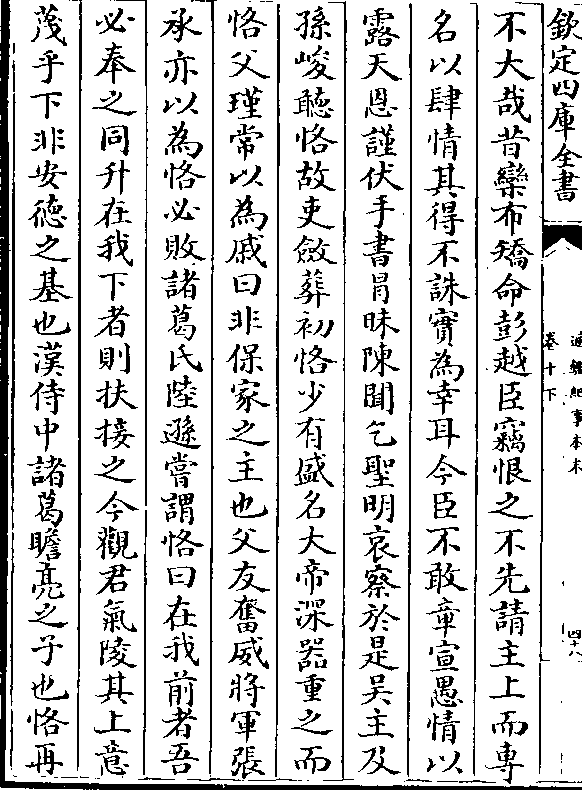 欽定四庫全書
通鑑紀事本末
卷十下
四十八
不大哉昔欒布矯命彭越臣竊恨之不先請主上而專
名以肆情其得不誅實為幸耳今臣不敢章宣愚情以
露天恩謹伏手書冒昧陳聞乞聖明哀察於是吴主及
孫峻聽恪故吏斂葬初恪少有盛名大帝深器重之而
恪父瑾常以為戚曰非保家之主也父友奮威將軍張
承亦以為恪必敗諸葛氏陸遜嘗謂恪曰在我前者吾
必奉之同升在我下者則扶接之今觀君氣陵其上意
茂乎下非安徳之基也漢侍中諸葛瞻亮之子也恪再